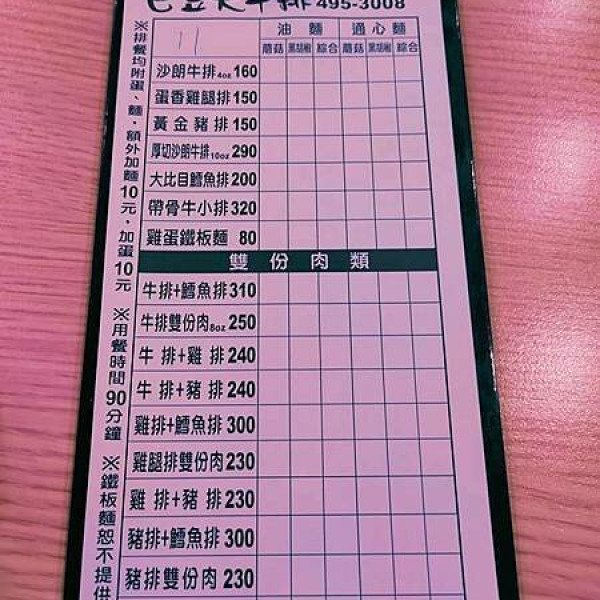 牛排 495-3008
11
油麵 通心麵
蘑菇 黑胡椒 綜合 蘑菇 黑胡椒 綜合
沙朗牛排4oz 160
蛋香雞腿排 150
黃金豬排 150
厚切沙朗牛排10oz 290
大比目鱈魚排 200
帶骨牛小排 320
雞蛋鐵板麵 80
雙份肉類
牛排+鱈魚排 310
牛排雙份肉8oz 250
牛排+雞排 240
牛排+豬排 240
雞排+鱈魚排 300
雞腿排雙份肉 230
雞排+豬排 230
豬排+鱈魚排 300
豬排雙份肉 230
※排餐均附蛋、麵,額外加麵10元,加蛋10元 ※用餐時間90分鐘 ※鐵板麵恕不提供